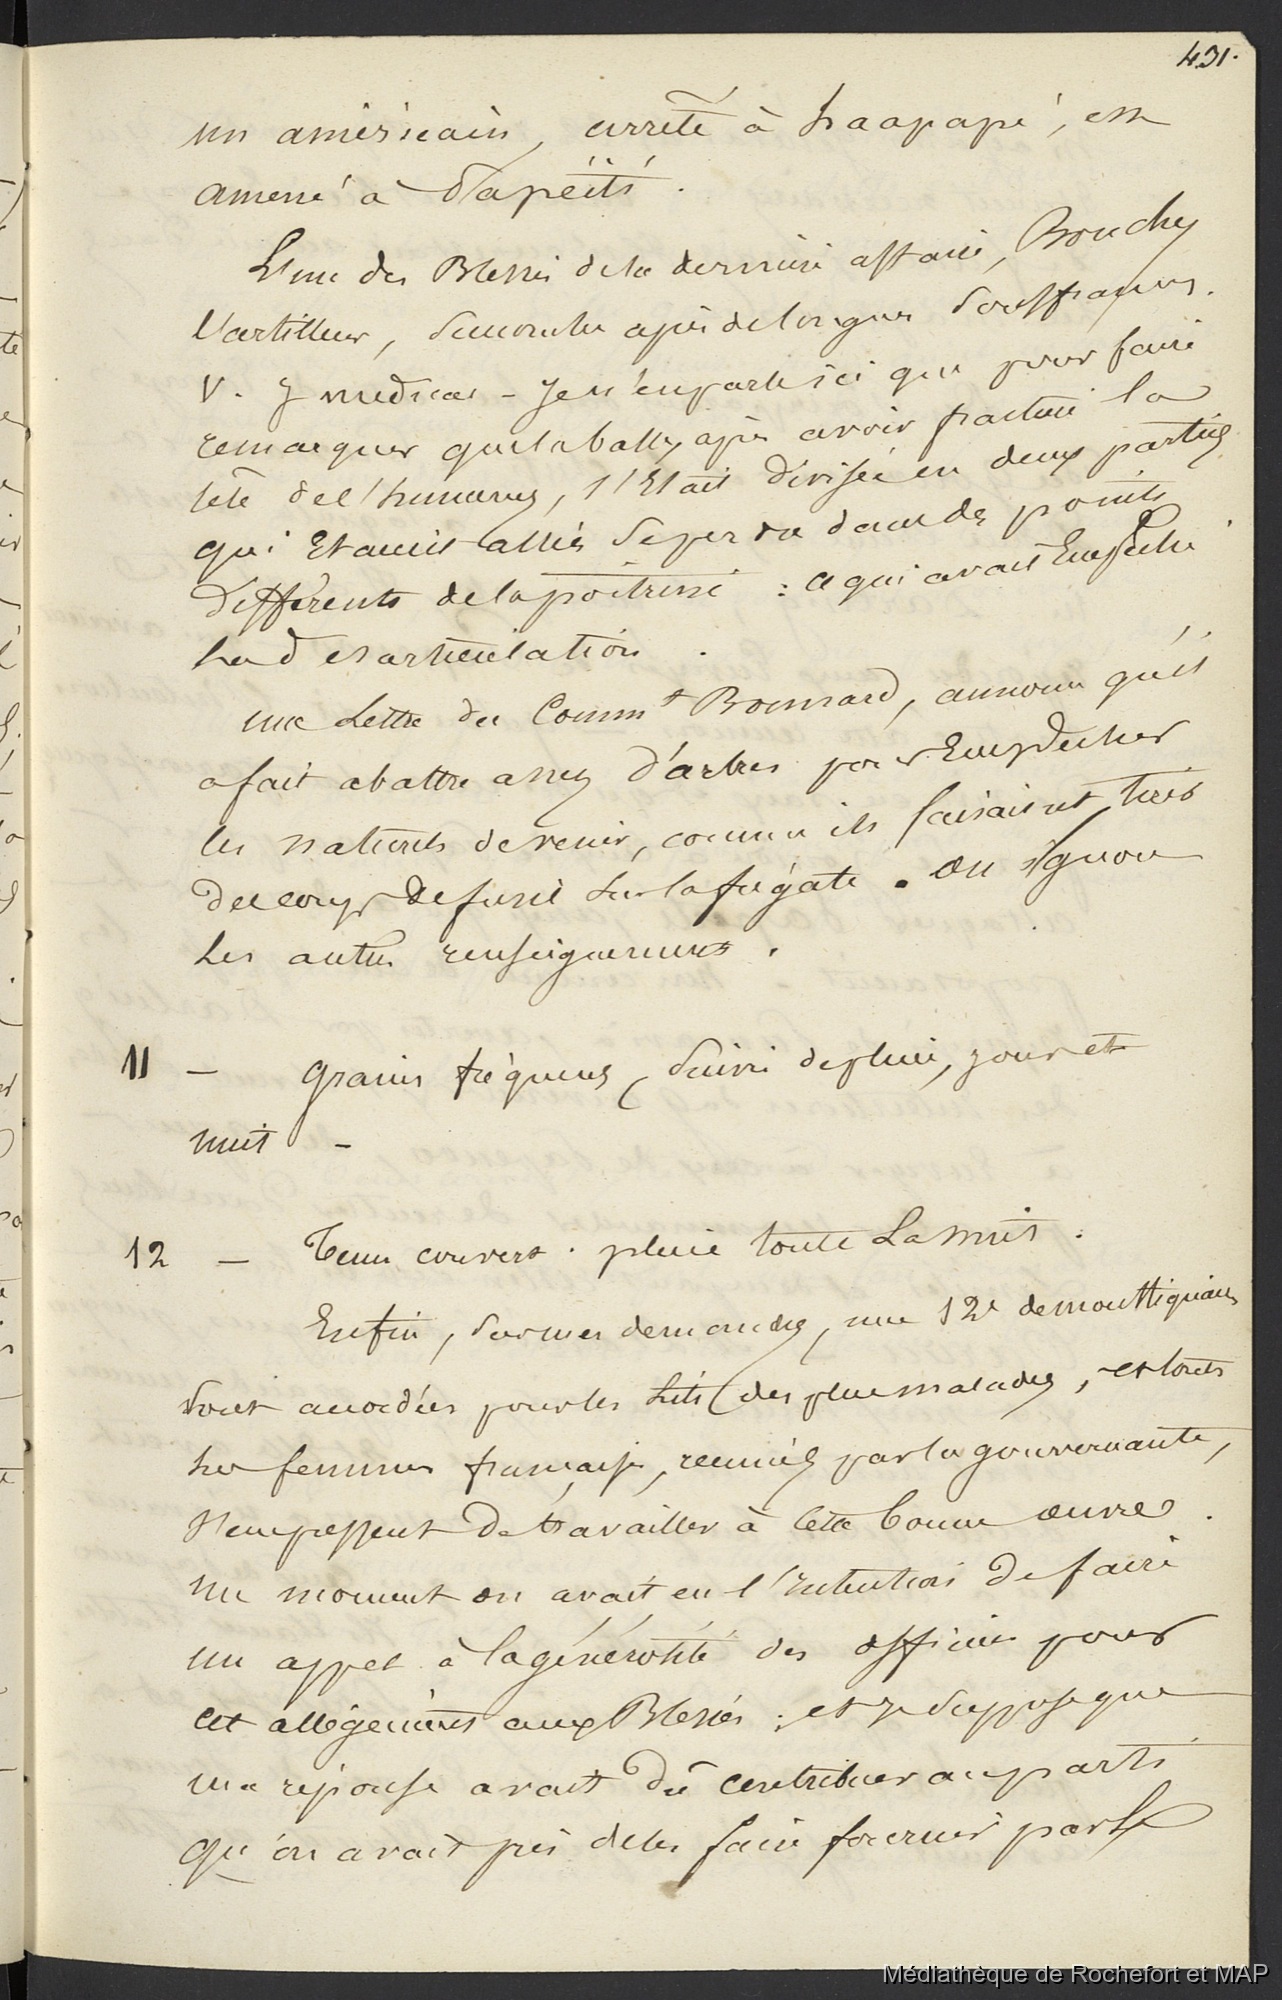 431.
un américain, arrêté à haapapé, est
amené à Papéiti.
L'un des Blessés de la dernière affaire, Bouchy
l'artilleur, succombe après de longues souffrances.
V. J medical - Je n'en parle ici que pour faire
remarquer que la balle, après avoir fracturé la
tête de l'humerus, s'Etait divisée en deux parties
qui Etaient allées se perdre dans des points
différents de la poitrine : ce qui avait Empêché
la désarticulation.
une Lettre du Commt Bonnard, annonce qu'il
a fait abattre assez d'arbres pour Empêcher
les naturels de venir, comme ils faisaient, tirer
des coups de fusil sur la frégate. on ignore
les autres renseignements.
11 - grains fréquens, suivi de pluie, jour et
nuit -
12 - Tems couvert. pluie toute La nuit.
Enfin, sur mes demandes, une 12e de moustiquaires
sont accordées pour les lits des plus malades, et toutes
les femmes françaises, réunies par la gouvernante,
s'empressent de travailler à cette bonne œuvre.
un moment on avait eu l'intention de faire
un appel à la générosité des officiers pour
cet allégement aux Blessés ; et je suppose que
ma réponse avait dû contribuer au parti
qu'on avait pris de les faire fournir par le
Médiathèque de Rochefort et MAP